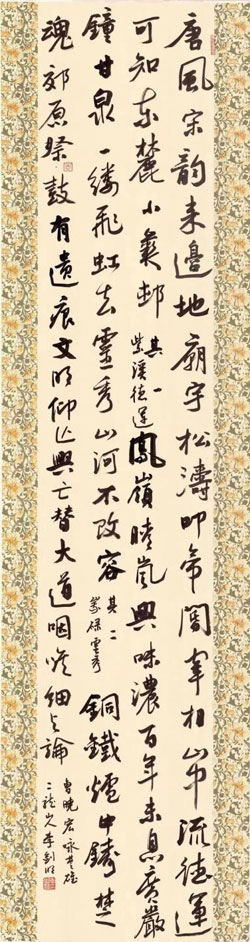 唐風宋韵來邊地廟宇松濤叩帝閽宰相山中流德運
可知東麓小彝邨其一
紫溪德運
鳳嶺晴嵐興味濃百年未息廣嚴
鐘甘泉一缕飛虹去靈秀山河不改容其二
靈秀
銅鐵爐中鑄楚
魂郊原祭鼓有遺痕文明仰止興亡替大道咽喉細與論
曹曉宏詠楚雄
李